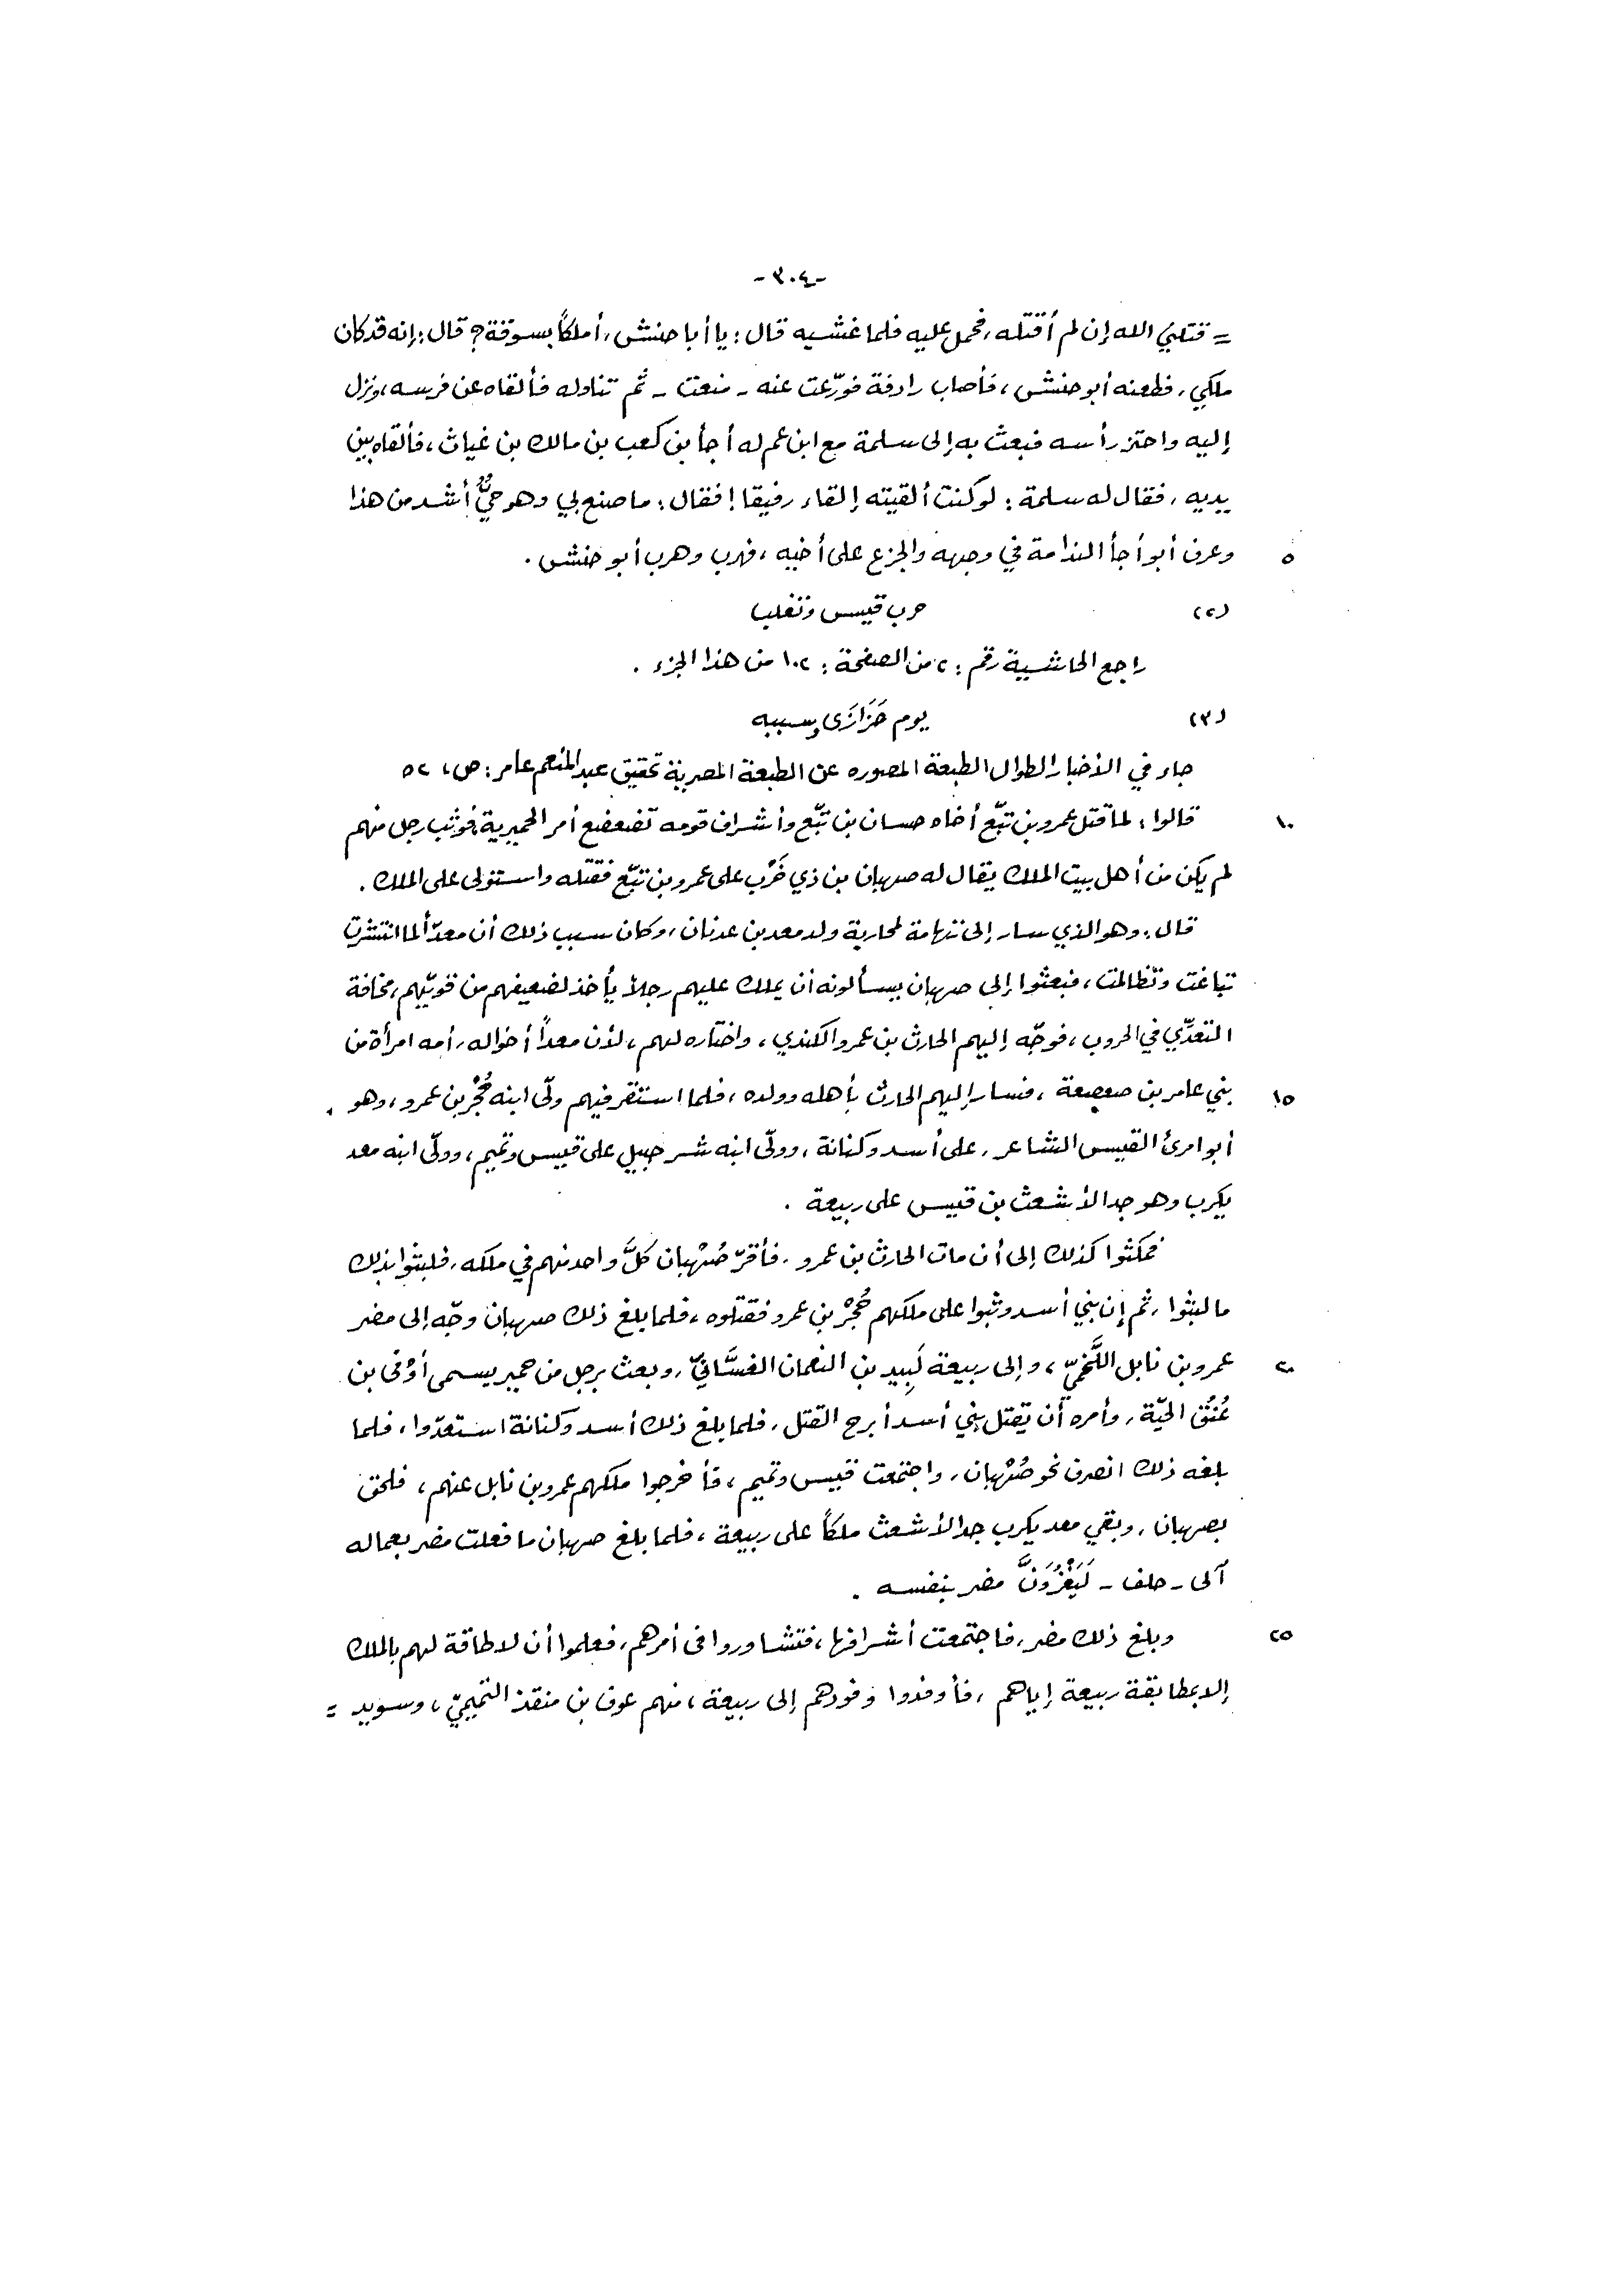 -٣٠٤-
= قتلني الله إن لم أقتله، فحمل عليه فلما غشيه قال: يا أبا حنش، أملكاً بسوقة؟ قال: إنه قد كان
ملكي، فطعنه أبو حنش، فأصاب رادفة فورّعت عنه - منعت - ثم تناوله فألقاه عن فرسه، ونزل
إليه واحتز رأسه فبعث به إلى سلمة مع ابن عم له أجأ بن كعب بن مالك بن غياث، فألقاه بين
يديه، فقال له سلمة: لو كنت ألقيته إلقاء رفيقا! فقال: ما صنع بي وهو حيٌّ أشد من هذا
٥ وعرف أبو أجأ الندامة في وجهه والجزع على أخيه، فهرب وهرب أبو حنش.
(٢) حرب قيس وتغلب
راجع الحاشية رقم: ٢ من الصفحة: ١٠٢ من هذا الجزء.
(٣) يوم خَزَازَى وسببه
جاء في الأخبار الطوال الطبعة المصوره عن الطبعة المصرية تحقيق عبد المنعم عامر: ص، ٥٢
١٠ قالوا: لما قتل عمرو بن تبّع أخاه حسان بن تبّع وأشراف قومه تضعضع أمر الحميرية، فوثب رجل منهم
لم يكن من أهل بيت الملك يقال له صهبان بن ذي خَرْب على عمرو بن تبّع فقتله واستولى على الملك.
قال: وهو الذي سار إلى تهامة لمحاربة ولد معد بن عدنان، وكان سبب ذلك أن معدّاً لما انتشرت
تباغت وتظالمت، فبعثوا إلى صهبان يسألونه أن يملك عليهم رجلاً يأخذ لضعيفهم من قويّهم، مخافة
التعدّي في الحروب، فوجّه إليهم الحارث بن عمرو الكندي، واختاره لهم، لأن معداً أخواله، أمه امرأة من
١٥ بني عامر بن صعصعة، فسار إليهم الحارث بأهله وولده، فلما استقر فيهم ولّى ابنه حُجْر بن عمرو، وهو
أبو امرئ القيس الشاعر، على أسد وكنانة، وولّى ابنه شرحبيل على قيس وتميم، وولّى ابنه معد
يكرب وهو جد الأشعث بن قيس على ربيعة.
فمكثوا كذلك إلى أن مات الحارث بن عمرو، فأقرّ صُهْبان كلَّ واحد منهم في ملكه، فلبثوا بذلك
ما لبثوا، ثم إن بني أسد وثبوا على ملكهم حُجْر بن عمرو فقتلوه، فلما بلغ ذلك صهبان وجّه إلى مضر
٢٠ عمرو بن نابل اللَّخميّ، وإلى ربيعة لَبِيد بن النعمان الغسَّانيّ، وبعث برجل من حمير يسمى أوْفى بن
عُنُق الحيّة، وأمره أن يقتل بني أسد أبرح القتل، فلما بلغ ذلك أسد وكنانة استعدّوا، فلما
بلغه ذلك انصرف نحو صُهْبان، واجتمعت قيس وتميم، فأخرجوا ملكهم عمرو بن نابل عنهم، فلحق
بصهبان، وبقي معد يكرب جد الأشعث ملكاً على ربيعة، فلما بلغ صهبان ما فعلت مضر بعماله
آلى - حلف - لَيَغْزُوَنَّ مضر بنفسه.
٢٥ وبلغ ذلك مضر، فاجتمعت أشرافها، فتشاوروا فى أمرهم، فعلموا أن لا طاقة لهم بالملك
إلا بمطابقة ربيعة إياهم، فأوفدوا وفودهم إلى ربيعة، منهم عوف بن منقذ التميميّ، وسويد =